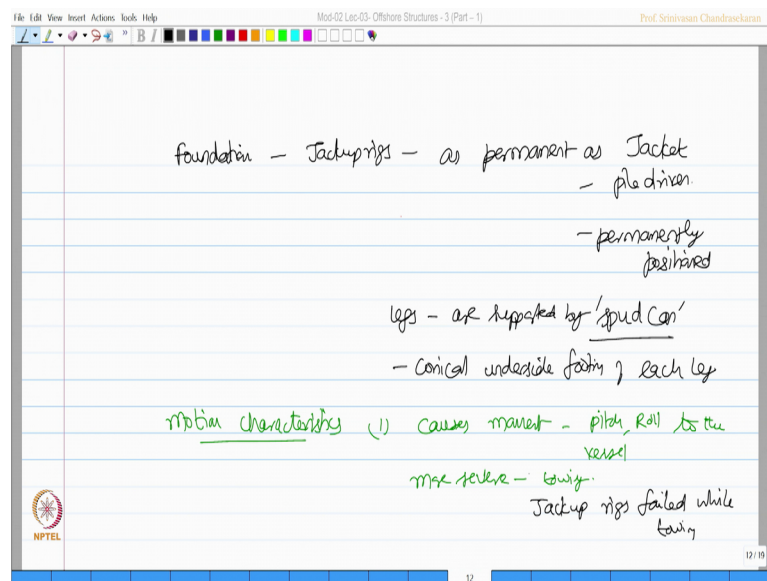 File Edit View Insert Actions Tools Help
Mod-02 Lec-03- Offshore Structures - 3 (Part – 1)
Prof. Srinivasan Chandrasekaran
B I
foundation - Jackup rigs - as permanent as Jacket
- pile driven.
- permanently
positioned
legs - are supported by 'spud can'
- Conical underside footing of each leg
Motion characteristics (1) Causes moment - pitch, Roll to the
vessel
more severe - towing.
Jackup rigs failed while
towing
NPTEL
12/19
12